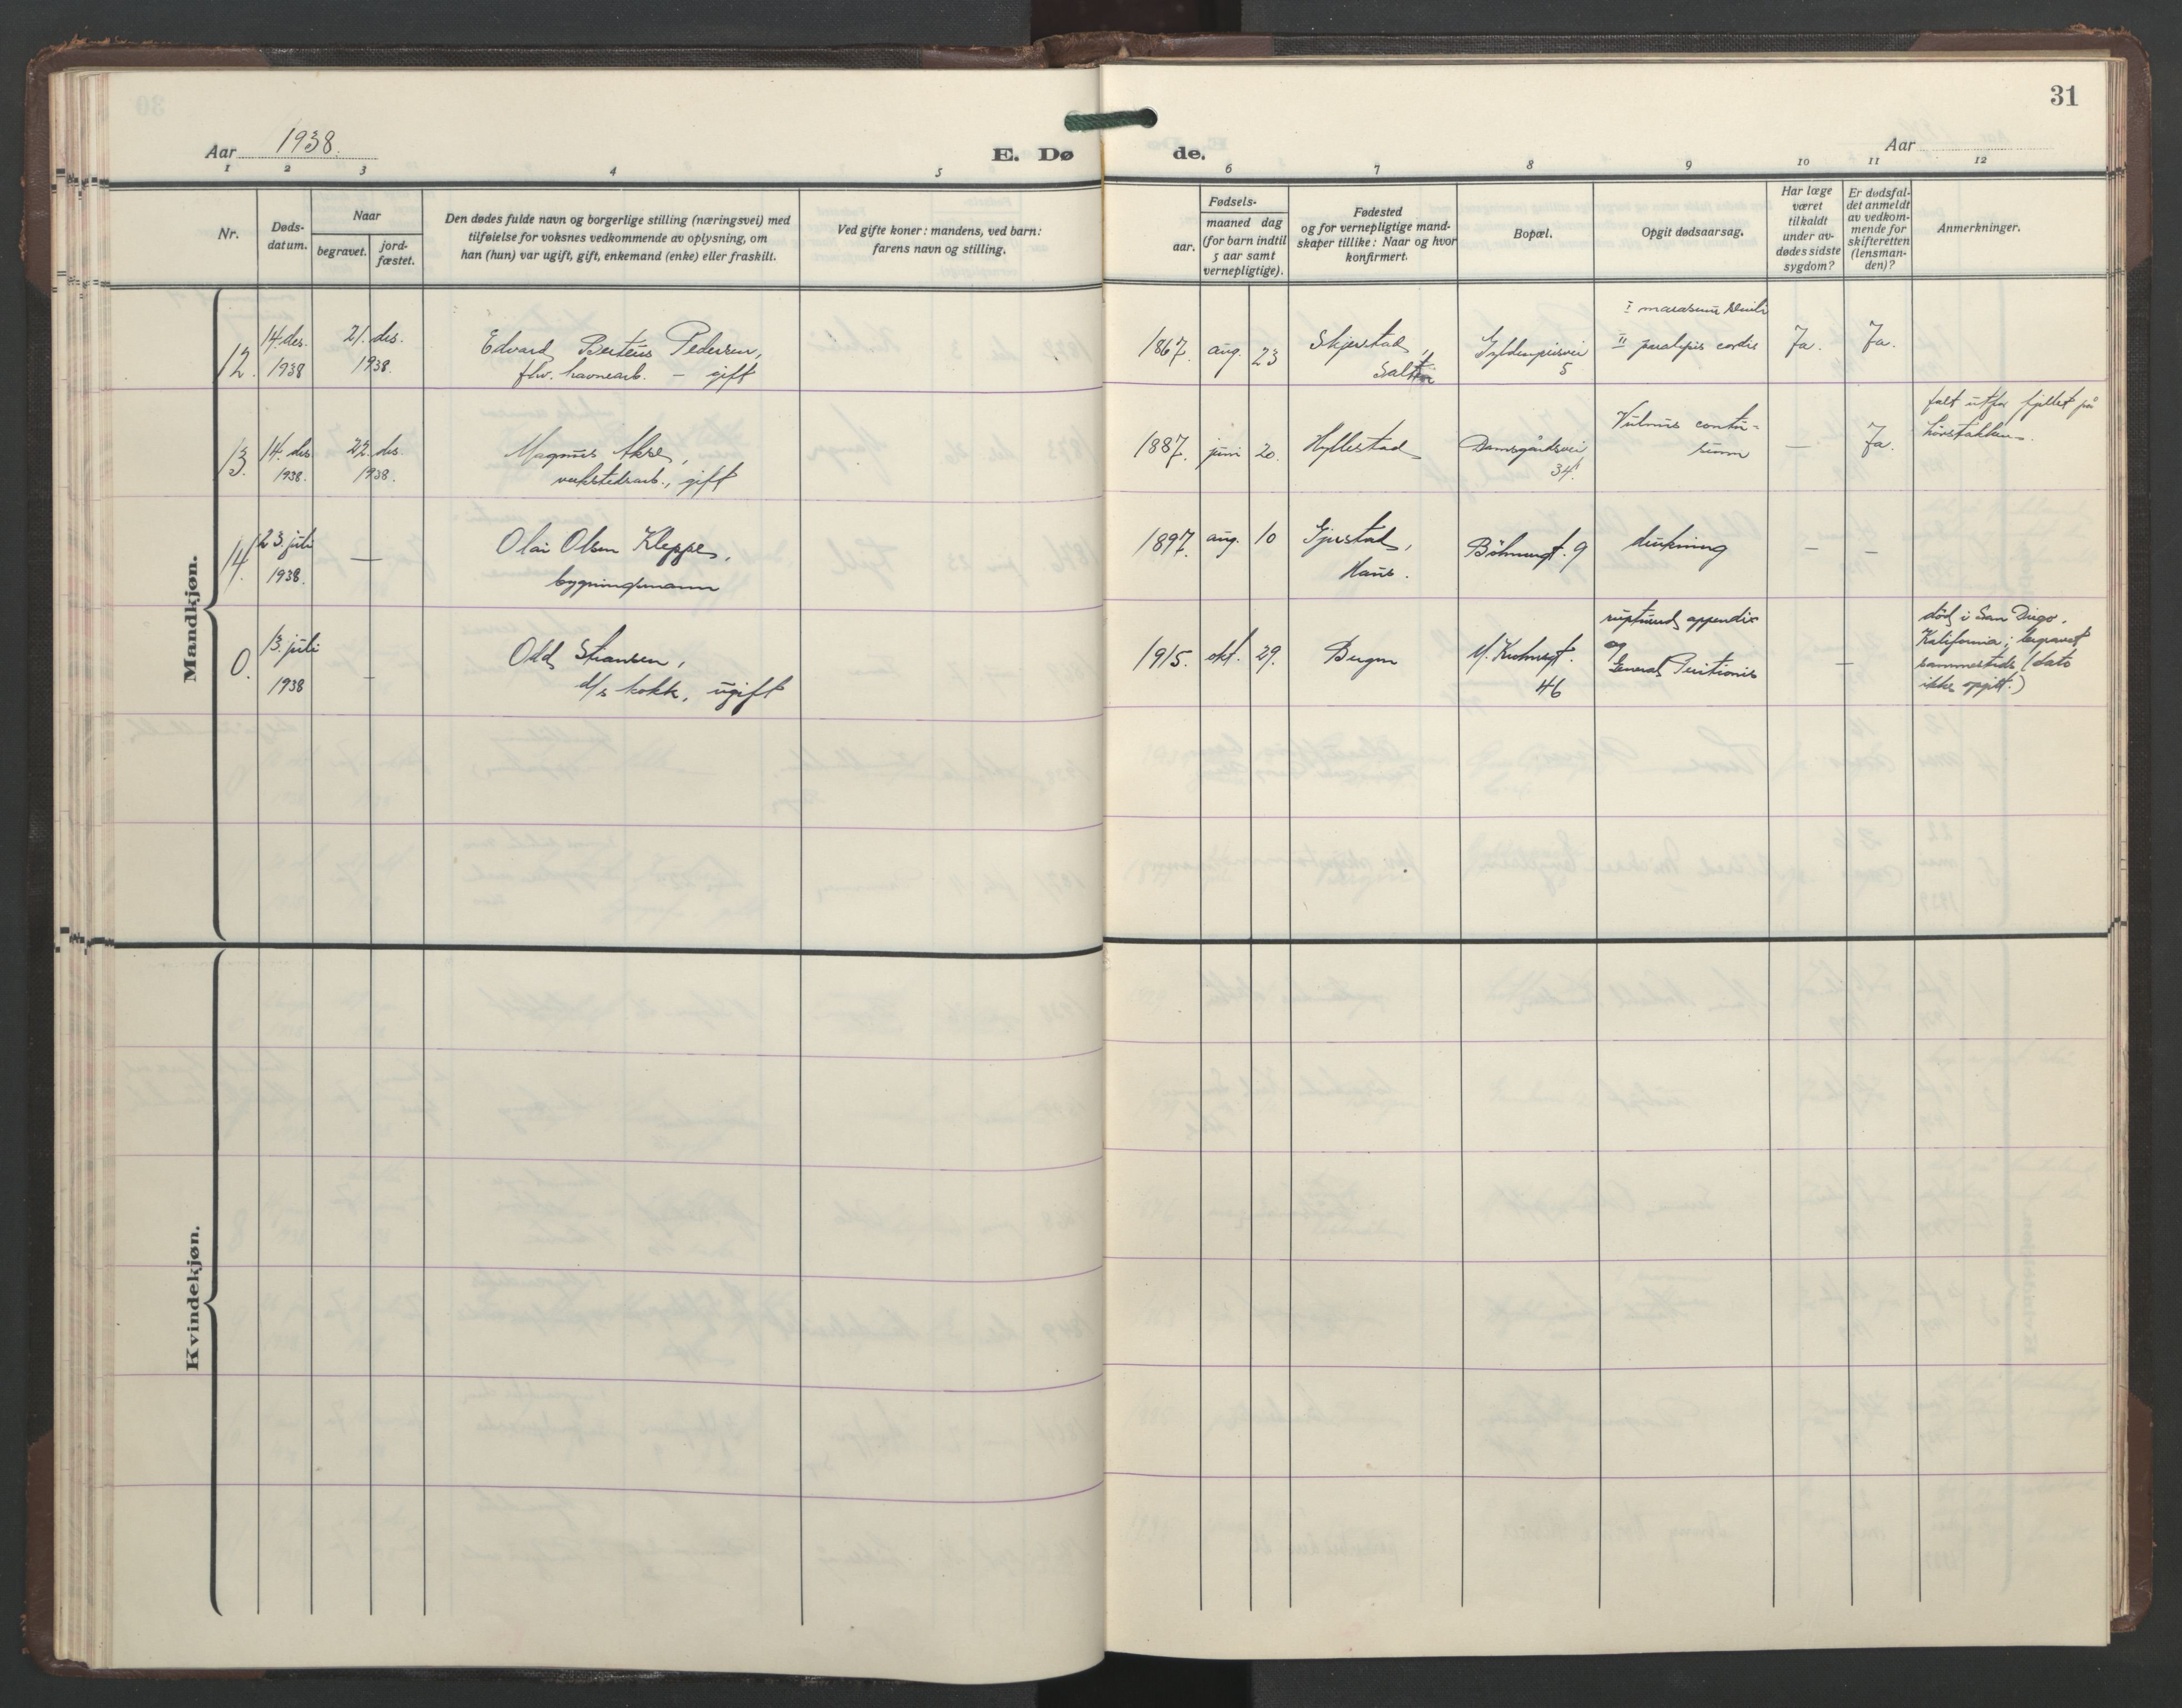 31
Aar 1938.
E. Dø
de.
Aar
1 2 3 4 5
6 7 8 9 10 11 12
Nr.
Døds-
datum.
Naar
begravet.
jord-
fæstet.
Den dødes fulde navn og borgerlige stilling (næringsvei) med
tilføielse for voksnes vedkommende av oplysning, om
han (hun) var ugift, gift, enkemand (enke) eller fraskilt.
Ved gifte koner: mandens, ved barn:
farens navn og stilling.
Fødsels-
aar.
maaned dag
(for barn indtil
5 aar samt
vernepligtige).
Fødested
og for vernepligtige mand-
skaper tillike: Naar og hvor
konfirmert.
Bopæl.
Opgit dødsaarsag.
Har læge
været
tilkaldt
under av-
dødes sidste
sygdom?
Er dødsfal-
det anmeldt
av vedkom-
mende for
skifteretten
(lensman-
den)?
Anmerkninger.
Mandkjøn.
12.
14. des.
1938
21. des.
1938.
Edvard Berteus Pedersen,
fhv. havnearb. – gift
1867. aug. 23
Skjerstad,
Salten
Gyldenprisvei
5
I marasmus senilis
II paralysis cordis
Ja.
Ja.
13.
14. des
1938.
22. des.
1938.
Magnus Akre,
verkstedsarb., gift
1887. juni 20.
Hyllestad
Damsgårdsvei
34.
Vulnus contu-
sum
—
Ja.
falt utfor fjellet på
14.
23. juli
1938.
—
Olai Olsen Kleppe,
bygningsmann
1897. aug. 10
Gjerstad,
Haus.
Böhmergt. 9
drukning
—
—
0.
13. juli
1938
–
Odd Stransen,
d/s kokk, ugift
1915. okt. 29.
Bergen
M. Krohnsgt.
46
rupturerd appendix
og
General Peritionis
—
död i San Diego,
Kalifornia; begravet
sammesteds (dato
ikke opgitt.)
Kvindekjøn.